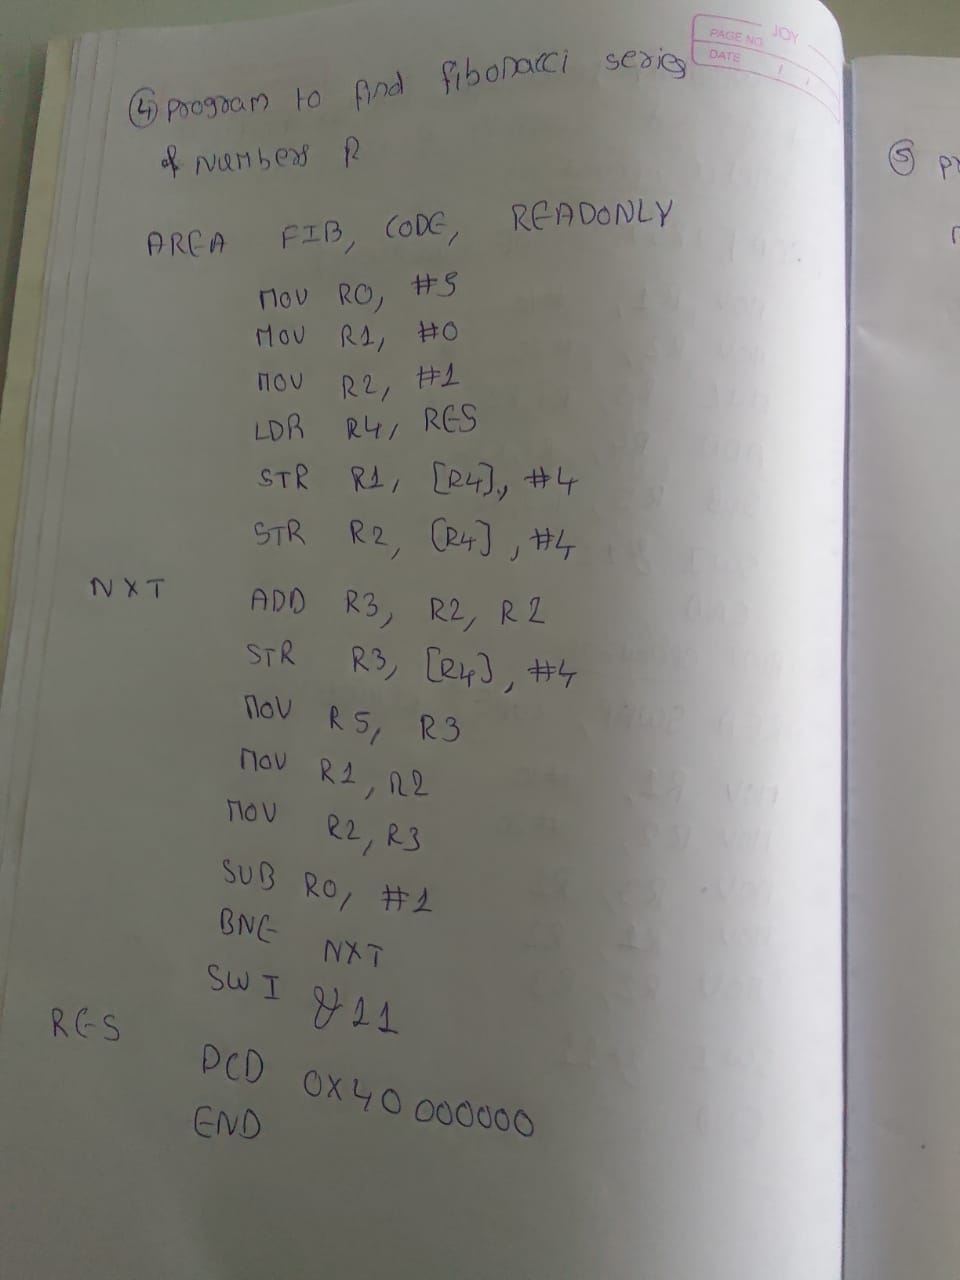 PAGE NO. JOY
DATE / /
④ program to find fibonacci series
of numbers R
AREA FIB, CODE, READONLY
MOV R0, #5
MOV R1, #0
MOV R2, #1
LDR R4, RES
STR R1, [R4], #4
STR R2, [R4], #4
NXT ADD R3, R2, R2
STR R3, [R4], #4
MOV R5, R3
MOV R1, R2
MOV R2, R3
SUB R0, #1
BNE NXT
SWI &11
RES
DCD 0X40 000000
END
⑤